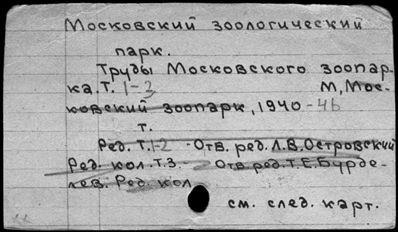 Московский зоологический
парк.
Труды Московского зоопар-
ка. Т. 1-3 М, Мос-
ковский зоопарк, 1940-46
т.
Ред. Т.1-2 - Отв. ред. Л.В. Островский
Ред. кол. Т.3 - Отв. ред. Т.Е. Бурде-
лев. Ред. кол
см. след. карт.